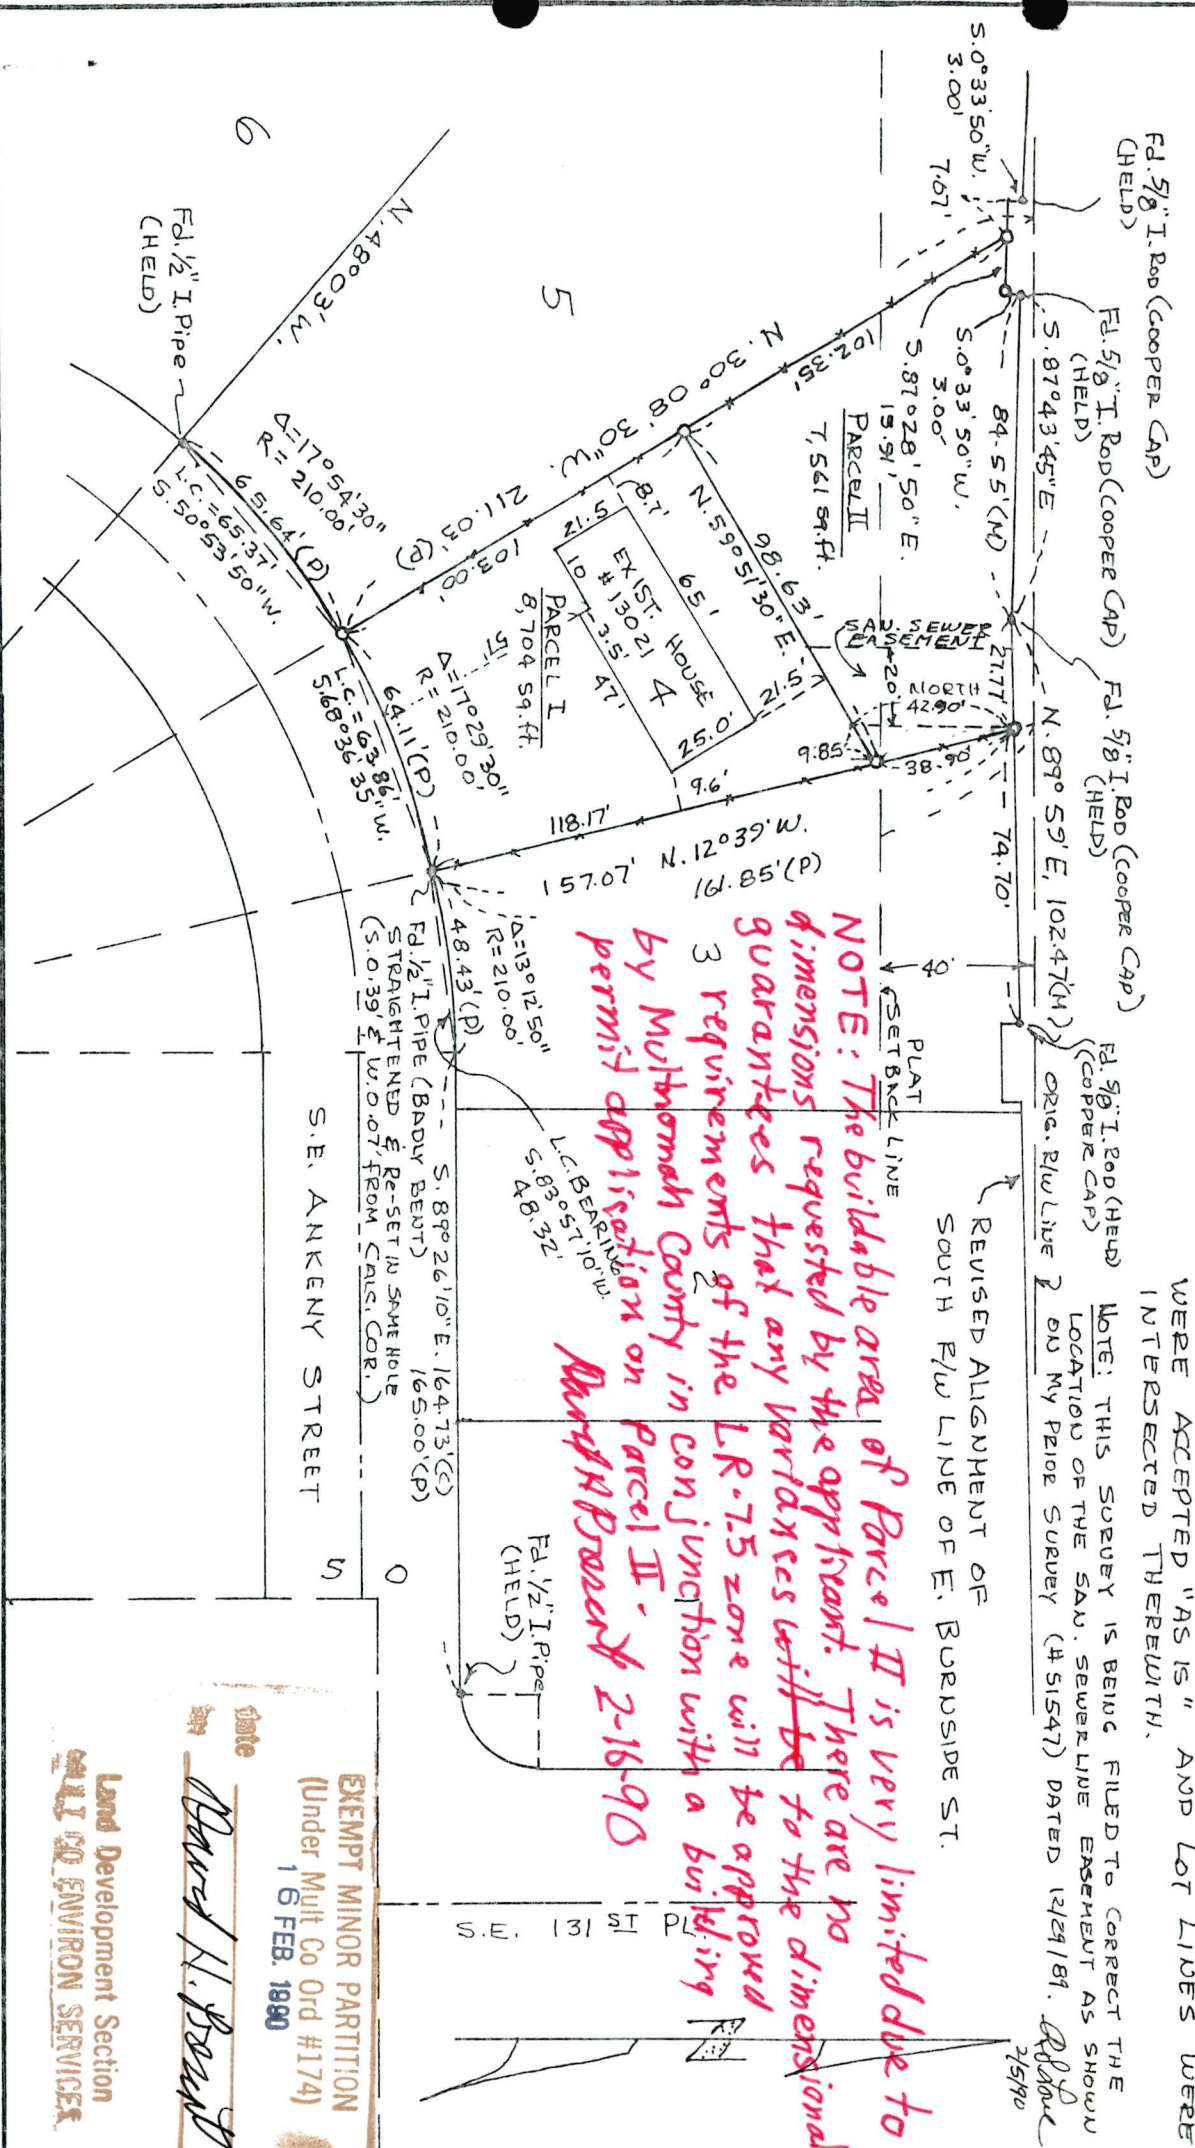 WERE ACCEPTED "AS IS" AND LOT LINES WERE
INTERSECTED THEREWITH.
NOTE: THIS SURVEY IS BEING FILED TO CORRECT THE
LOCATION OF THE SAN. SEWER LINE EASEMENT AS SHOWN
ON MY PRIOR SURVEY (#51547) DATED 12/29/89.
2/5/90
Fd. 5/8" I. ROD (COOPER CAP)
(HELD)
Fd. 5/8" I. ROD (COOPER CAP)
(HELD)
Fd. 5/8" I. ROD (COOPER CAP)
(HELD)
Fd. 5/8" I. ROD (HELD)
(COPPER CAP)
ORIG. R/W LINE
S.0°33'50"W.
3.00'
7.07'
S.87°43'45"E
84.55'(M)
27.77'
N.89°59'E, 102.47'(M)
74.70'
S.0°33'50"W.
3.00'
S.87°28'50"E.
19.91'
REVISED ALIGNMENT OF
SOUTH R/W LINE OF E. BURNSIDE ST.
40'
PLAT
SETBACK LINE
PARCEL II
7,561 sq.ft.
SAN. SEWER
EASEMENT
20'
NORTH
42.90'
38.90
9.85
102.35'
N. 30° 08' 30" W.
211.03' (P)
103.00'
98.63'
N.59°51'30"E.
8.7'
21.5
65'
21.5
EXIST. HOUSE
#13021
4
10
3.5'
47'
25.0'
9.6'
PARCEL I
8,704 sq.ft.
51'
118.17'
157.07'
N.12°39'W.
161.85'(P)
5
6
3
2
1
N.48°03'W.
Fd. 1/2" I. Pipe
(HELD)
Δ=17°54'30"
R=210.00'
65.64'(P)
L.C.=65.37'
S.50°53'50"W.
Δ=17°29'30"
R=210.00'
64.11'(P)
L.C.=63.86'
S.68°36'35"W.
Δ=13°12'50"
R=210.00'
48.43'(P)
L.C. BEARING
S.83°57'10"W.
48.32'
Fd. 1/2" I. PIPE (BADLY BENT)
STRAIGHTENED & RE-SET IN SAME HOLE
(S.0.39' & W.0.07' FROM CALC. COR.)
S.89°26'10"E. 164.73'(C)
165.00'(P)
S.E. ANKENY STREET
50
Fd. 1/2" I. Pipe
(HELD)
S.E. 131 ST PL.
N
NOTE: The buildable area of Parcel II is very limited due to
dimensions requested by the applicant. There are no
guarantees that any variances will be to the dimensional
requirements of the LR-7.5 zone will be approved
by Multnomah County in conjunction with a building
permit application on Parcel II.
2-16-90
EXEMPT MINOR PARTITION
(Under Mult Co Ord #174)
date 16 FEB. 1990
by David H. Prescott
Land Development Section
MULT CO ENVIRON SERVICES